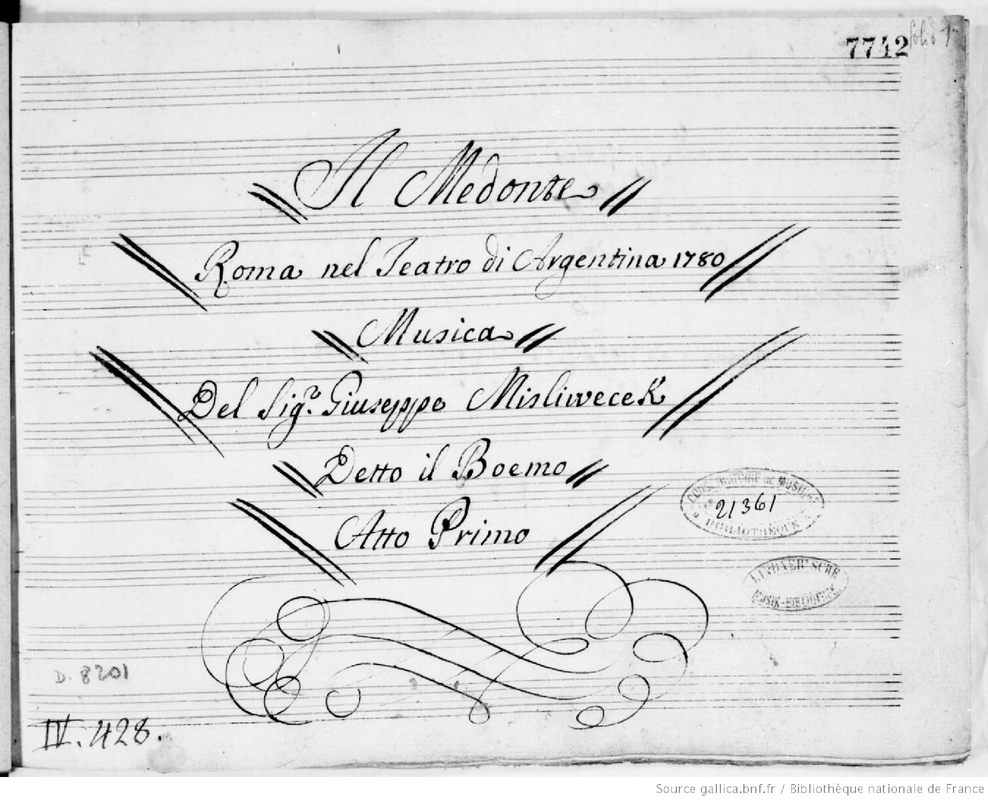 7742
folio 1
Il Medonte
Roma nel Teatro di Argentina 1780
Musica
Del Sig.r Giuseppe Misliwecek
Detto il Boemo
Atto Primo
CONSERVATOIRE DE MUSIQUE
21361
BIBLIOTHÈQUE
LINDNER'SCHE
MUSIK-BIBLIOTHEK
D. 8201
IV. 428.
Source gallica.bnf.fr / Bibliothèque nationale de France